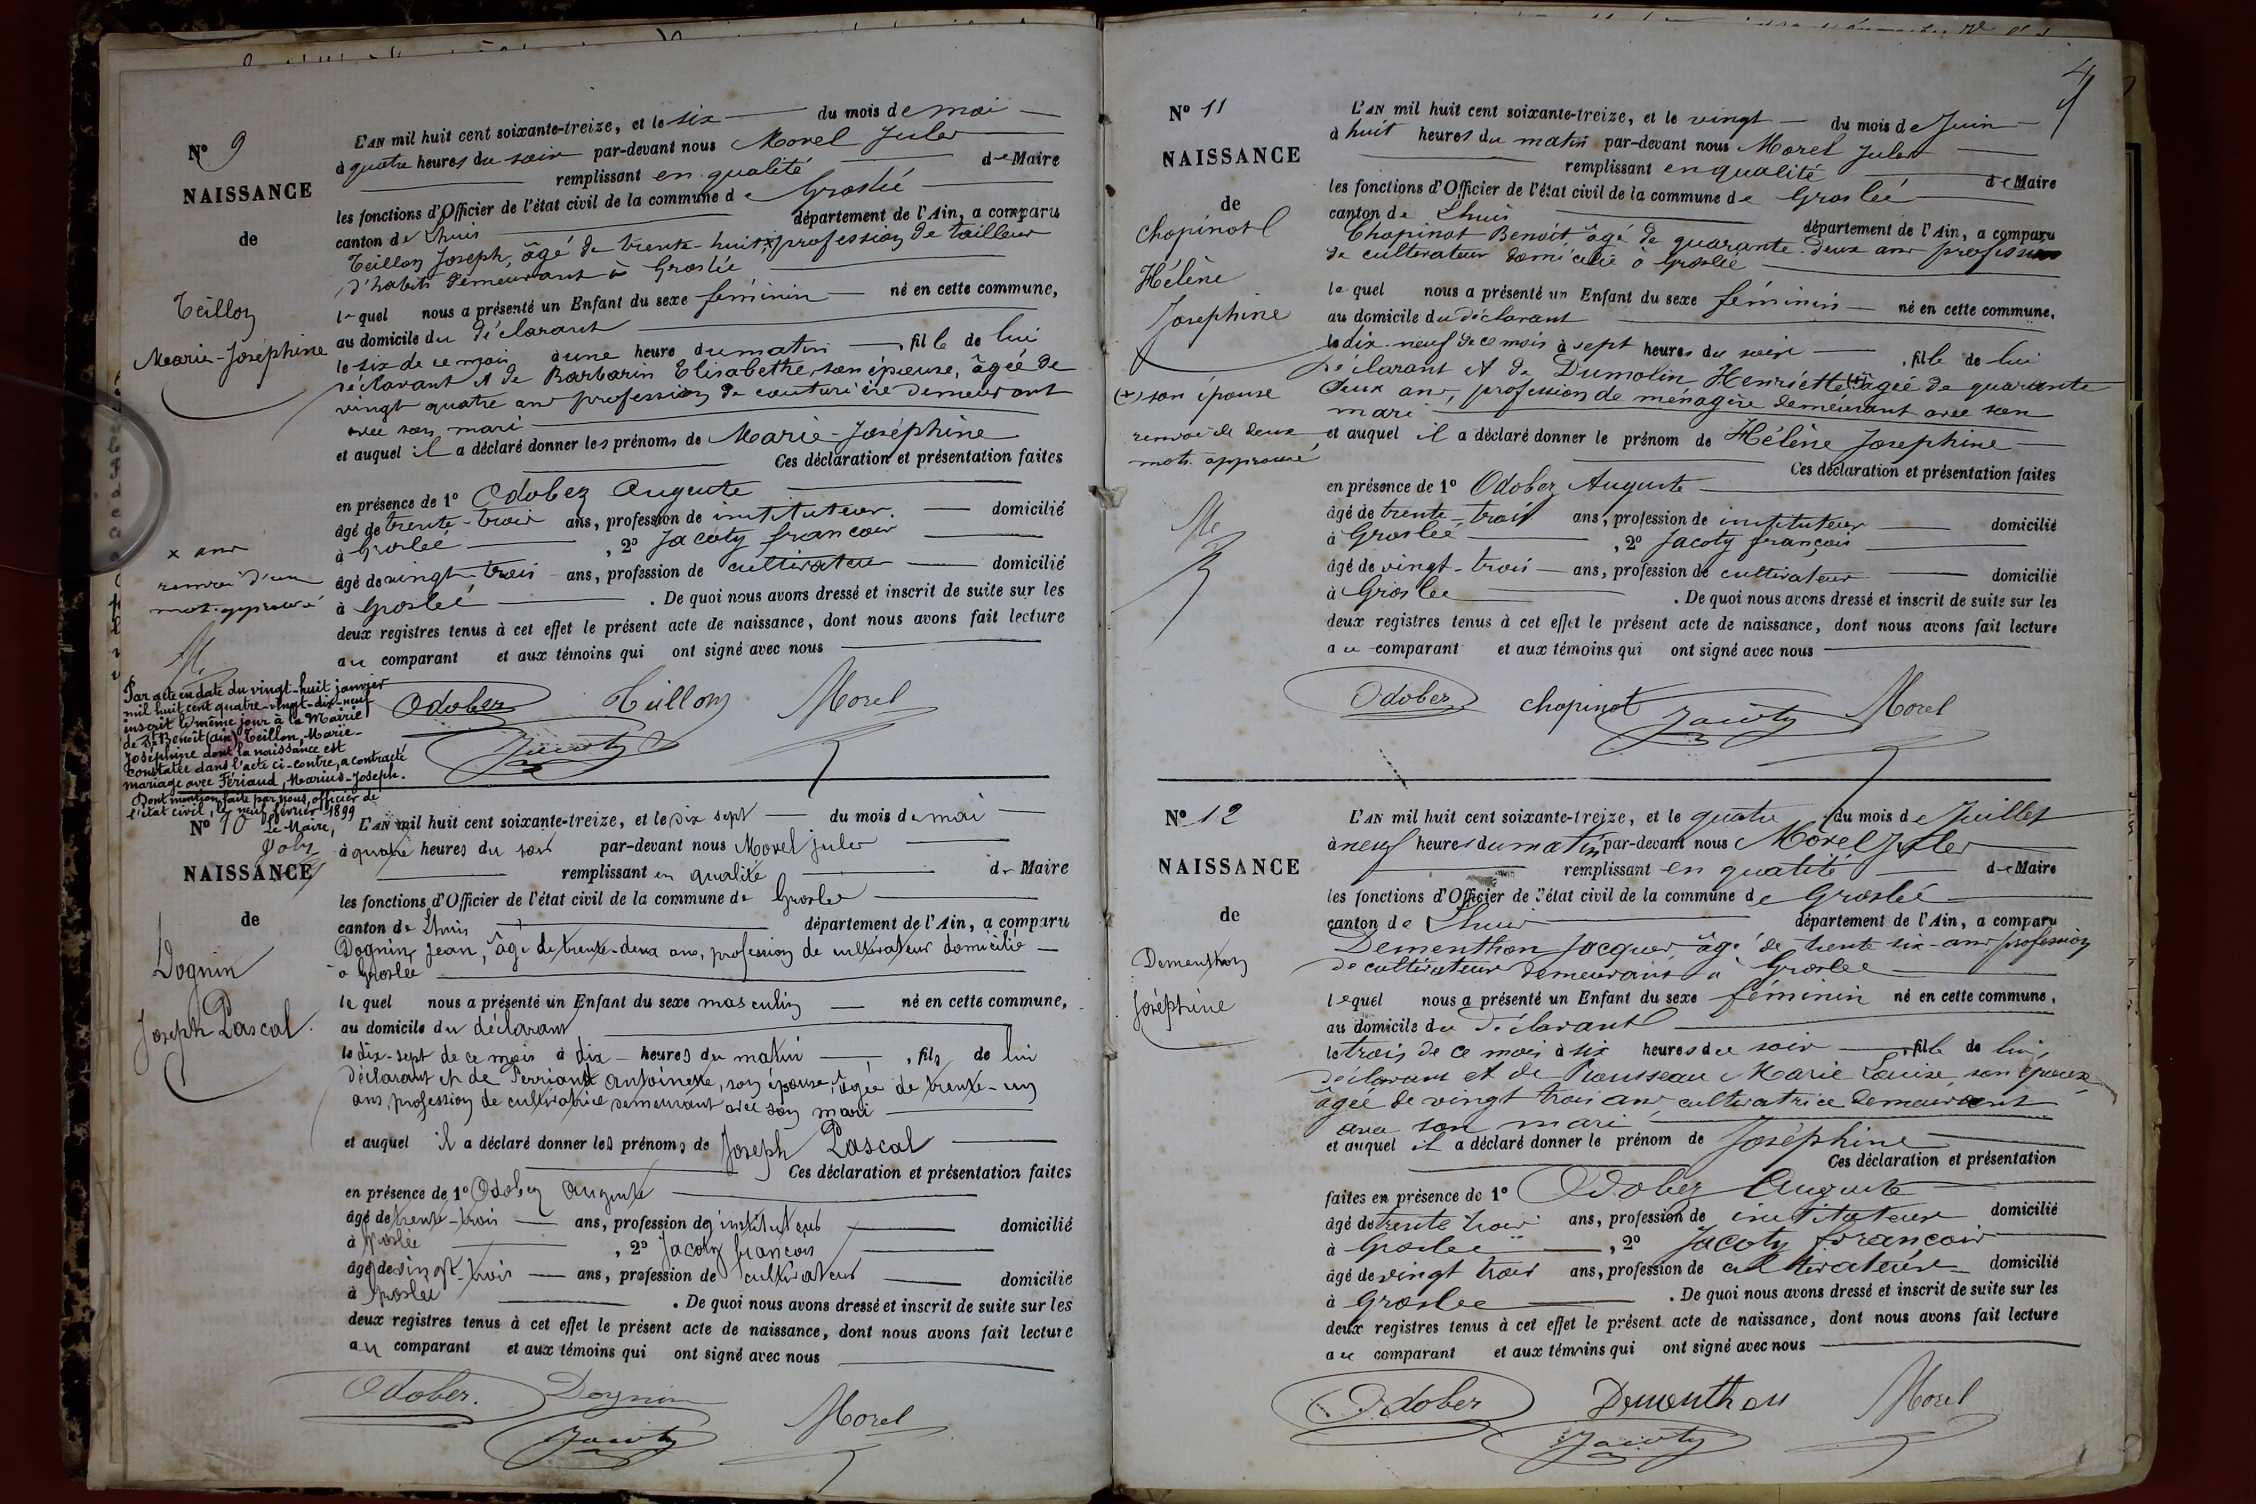 4
Nº 9
NAISSANCE
de
Teillon
Marie-Joséphine
L'AN mil huit cent soixante-treize, et le six du mois de mai
à quatre heures du soir par-devant nous Morel Jules
remplissant en qualité de Maire
les fonctions d'Officier de l'état civil de la commune de Groslée
canton de Lhuis département de l'Ain, a comparu
Teillon Joseph, âgé de trente-huit x profession de tailleur
d'habits demeurant à Groslée
lequel nous a présenté un Enfant du sexe féminin né en cette commune,
au domicile du déclarant
le six de ce mois à une heure du matin fille de lui
déclarant et de Barbarin Elisabethe, son épouse, âgée de
vingt quatre ans profession de couturière demeurant
avec son mari
et auquel il a déclaré donner les prénoms de Marie-Joséphine
Ces déclaration et présentation faites
en présence de 1º Odobez Auguste
âgé de trente-trois ans, profession de instituteur domicilié
à Groslée , 2º Jacoty françois
âgé de vingt-trois ans, profession de cultivateur domicilié
à Groslée . De quoi nous avons dressé et inscrit de suite sur les
deux registres tenus à cet effet le présent acte de naissance, dont nous avons fait lecture
au comparant et aux témoins qui ont signé avec nous
x ans
renvoi d'un
mot approuvé
Odobez Teillon Morel
Jacoty
Par acte en date du vingt-huit janvier
mil huit cent quatre-vingt-dix-neuf
inscrit le même jour à la Mairie
de St Benoît (Ain) Teillon, Marie-
Joséphine dont la naissance est
constatée dans l'acte ci-contre, a contracté
mariage avec Fériaud, Marius-Joseph.
Dont mention faite par nous, officier de
l'état civil, le neuf février 1899
Le Maire,
Nº 10
NAISSANCE
de
Dognin
Joseph Pascal
L'AN mil huit cent soixante-treize, et le dix sept du mois de mai
à quatre heures du soir par-devant nous Morel jules
remplissant en qualité de Maire
les fonctions d'Officier de l'état civil de la commune de Groslée
canton de Lhuis département de l'Ain, a comparu
Dognin Jean, âgé de trente-deux ans, profession de cultivateur domicilié
à Groslée
lequel nous a présenté un Enfant du sexe masculin né en cette commune,
au domicile du déclarant
le dix-sept de ce mois à dix heures du matin , fils de lui
déclarant et de Perriand Antoinette, son épouse, âgée de trente-un
ans, profession de cultivatrice demeurant avec son mari
et auquel il a déclaré donner les prénoms de Joseph Pascal
Ces déclaration et présentation faites
en présence de 1º Odobez Auguste
âgé de trente-trois ans, profession de instituteur domicilié
à Groslée , 2º Jacoty françois
âgé de vingt-trois ans, profession de cultivateur domicilié
à Groslée . De quoi nous avons dressé et inscrit de suite sur les
deux registres tenus à cet effet le présent acte de naissance, dont nous avons fait lecture
au comparant et aux témoins qui ont signé avec nous
Odobez. Dognin Morel
Jacoty
Nº 11
NAISSANCE
de
Chopinot
Hélène
Josephine
L'AN mil huit cent soixante-treize, et le vingt du mois de Juin
à huit heures du matin par-devant nous Morel Jules
remplissant en qualité de Maire
les fonctions d'Officier de l'état civil de la commune de Groslée
canton de Lhuis département de l'Ain, a comparu
Chopinot Benoit âgé de quarante deux ans profession
de cultivateur domicilié à Groslée
lequel nous a présenté un Enfant du sexe féminin né en cette commune,
au domicile du déclarant
le dix-neuf de ce mois à sept heures du soir , fille de lui
déclarant et de Dumolin Henriette (+) âgée de quarante
deux ans, profession de ménagère demeurant avec son
mari
et auquel il a déclaré donner le prénom de Hélène Josephine
Ces déclaration et présentation faites
(+) son épouse
renvoi de deux
mots approuvé
en présence de 1º Odobez Auguste
âgé de trente-trois ans, profession de instituteur domicilié
à Groslée , 2º Jacoty françois
âgé de vingt-trois ans, profession de cultivateur domicilié
à Groslée . De quoi nous avons dressé et inscrit de suite sur les
deux registres tenus à cet effet le présent acte de naissance, dont nous avons fait lecture
au comparant et aux témoins qui ont signé avec nous
Odobez chopinot Jacoty Morel
Nº 12
NAISSANCE
de
Dementhon
Joséphine
L'AN mil huit cent soixante-treize, et le quatre du mois de Juillet
à neuf heures du matin par-devant nous Morel Jules
remplissant en qualité de Maire
les fonctions d'Officier de l'état civil de la commune de Groslée
canton de Lhuis département de l'Ain, a comparu
Dementhon Jacques âgé de trente six ans profession
de cultivateur demeurant à Groslée
lequel nous a présenté un Enfant du sexe féminin né en cette commune,
au domicile du déclarant
le trois de ce mois à six heures du soir , fille de lui,
déclarant et de Rousseau Marie Louise, son épouse
âgée de vingt trois ans, cultivatrice demeurant
avec son mari
et auquel il a déclaré donner le prénom de Joséphine
Ces déclaration et présentation
faites en présence de 1º Odobez Auguste
âgé de trente trois ans, profession de instituteur domicilié
à Groslée , 2º Jacoty francois
âgé de vingt trois ans, profession de cultivateur domicilié
à Groslée . De quoi nous avons dressé et inscrit de suite sur les
deux registres tenus à cet effet le présent acte de naissance, dont nous avons fait lecture
au comparant et aux témoins qui ont signé avec nous
Odobez Dementhon Morel
Jacoty